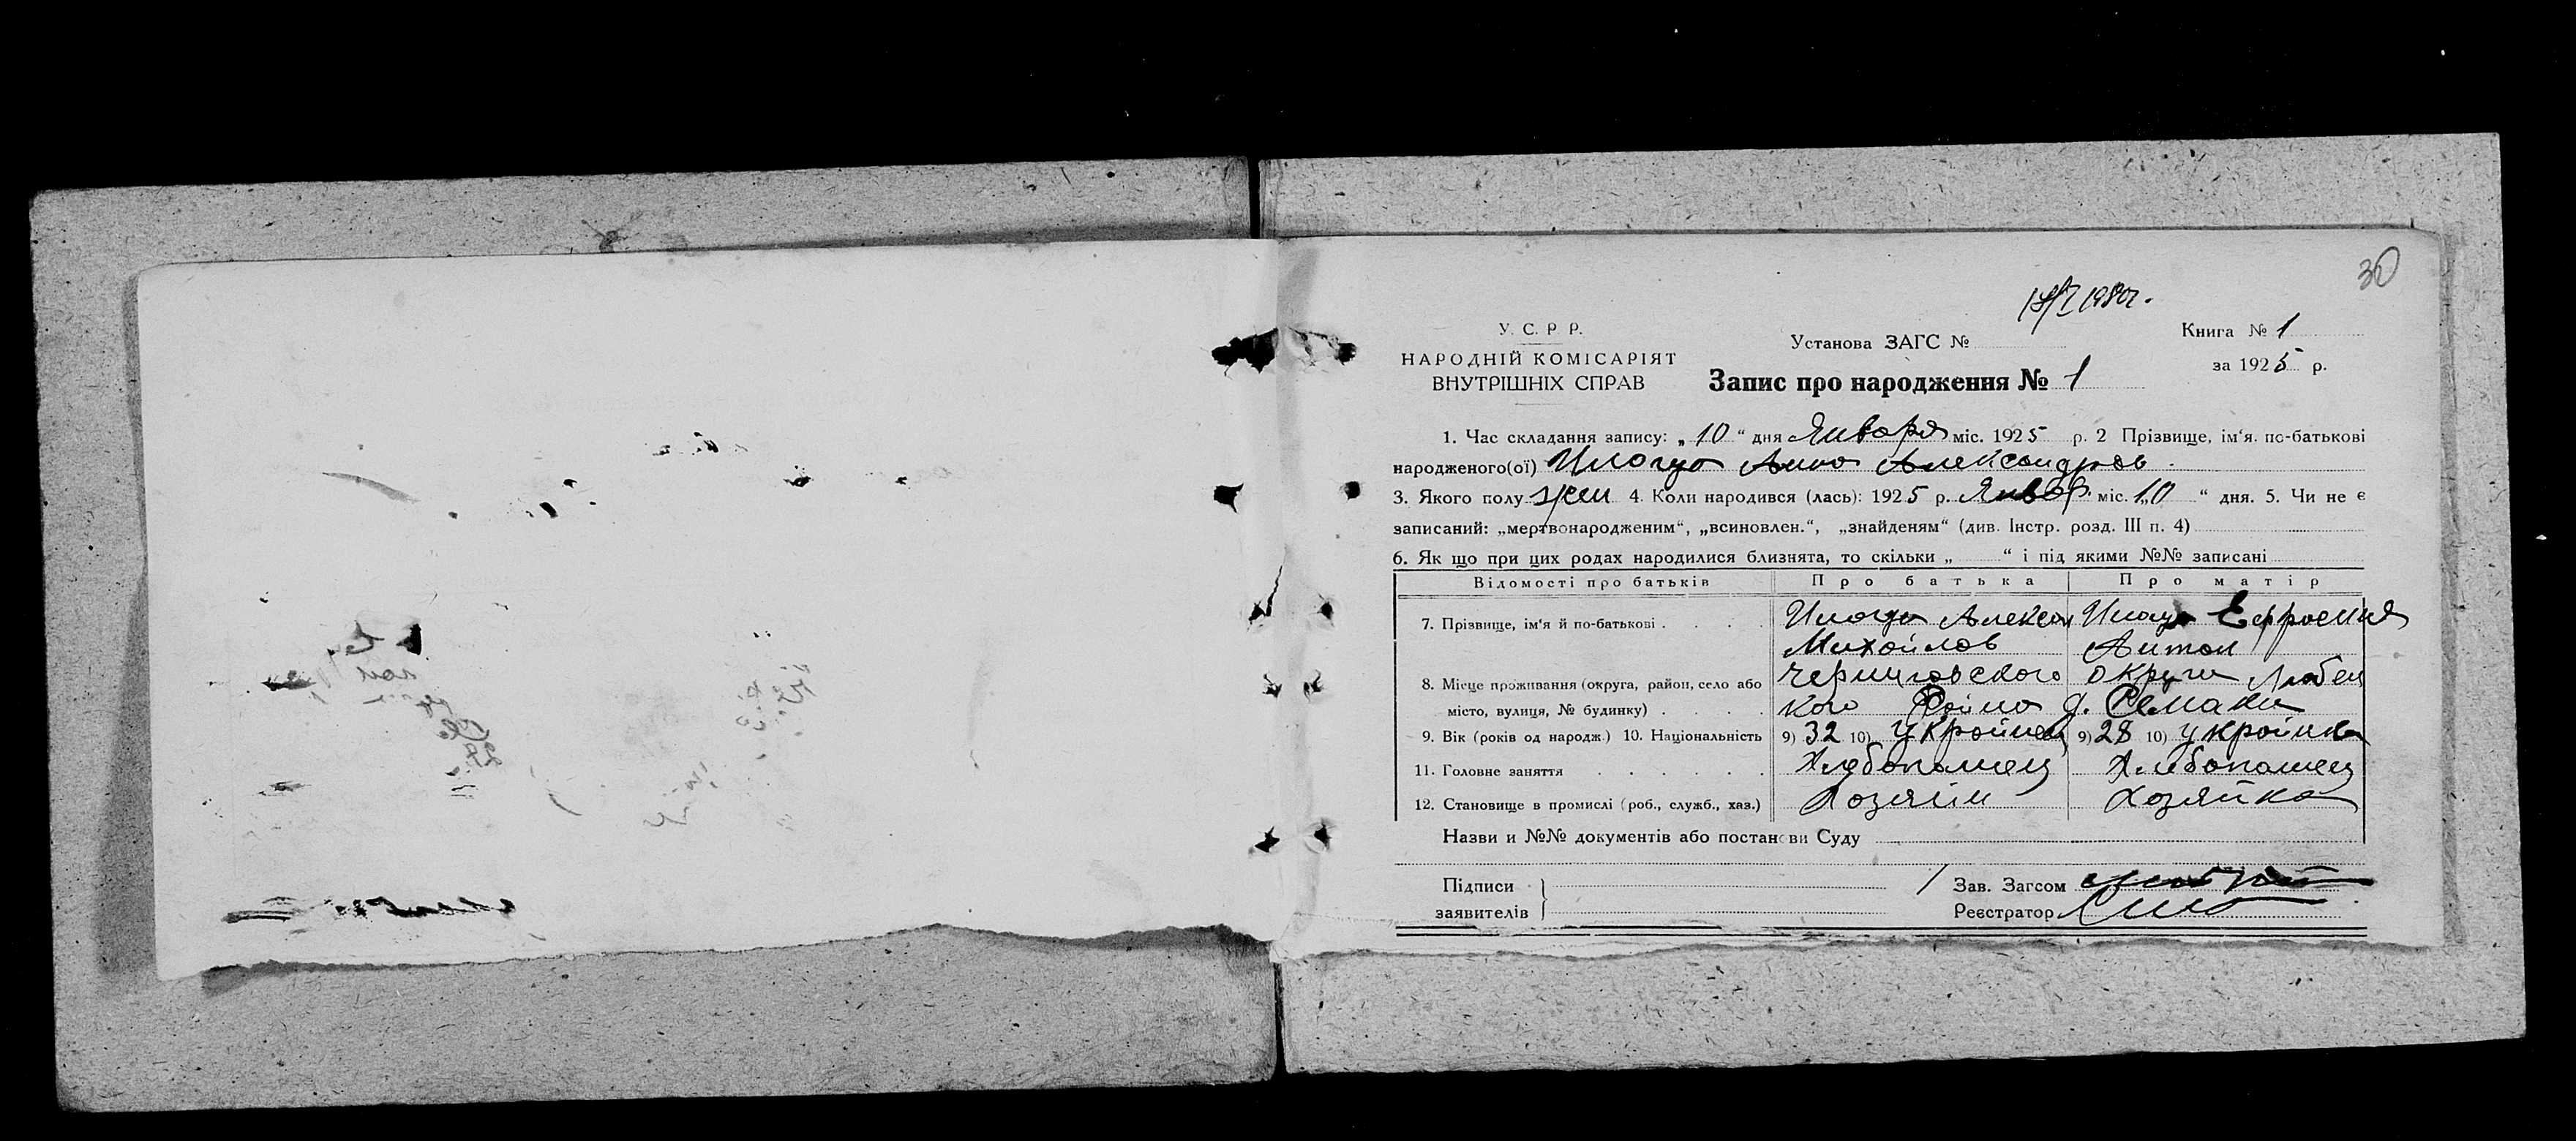 30
У. С. Р. Р.
НАРОДНІЙ КОМІСАРІЯТ
ВНУТРІШНІХ СПРАВ
Установа ЗАГС №
Книга № 1
за 1925 р.
Запис про народження № 1
1. Час складання запису: „10“ дня Января міс. 1925 р. 2 Прізвище, ім'я, по-батькові
народженого(ої) Анна Александров.
3. Якого полу жен 4. Коли народився (лась): 1925 р. Январ. міс. „10“ дня. 5. Чи не є
записаний: „мертвонародженим“, „всиновлен.“, „знайденям“ (див. Інстр. розд. III п. 4)
6. Як що при цих родах народилися близнята, то скільки „ “ і під якими №№ записані
Відомості про батьків Про батька Про матір
7. Прізвище, ім'я й по-батькові . . . . Алексан Ефросиня
Михайлов Антон
8. Місце проживання (округа, район, село або Черниговского округи Любец
місто, вулиця, № будинку) . . . . кого Район д. Семаки
9. Вік (років од народж.) 10. Національність 9) 32 10) Українец 9) 28 10) українка
11. Головне заняття . . . . . . Хлебопашец Хлебопашец
12. Становище в промислі (роб., служб., хаз.) Хозяин Хозяйка
Назви и №№ документів або постанови Суду
Підписи
заявителів
Зав. Загсом
Реєстратор